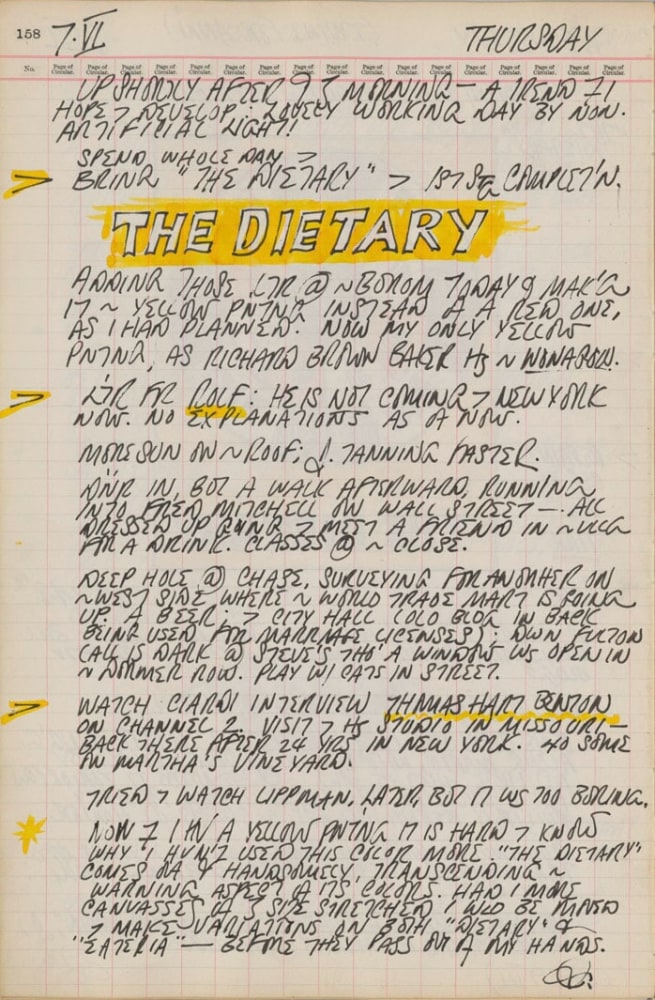 158 7·VI THURSDAY
No. Page of Circular. Page of Circular. Page of Circular. Page of Circular. Page of Circular. Page of Circular. Page of Circular. Page of Circular. Page of Circular. Page of Circular. Page of Circular. Page of Circular. Page of Circular. Page of Circular. Page of Circular.
UP SHORTLY AFTER 9 MORNING — A TREND I
HOPE > DEVELOP. LOVELY WORKING DAY BY NON.
ARTIFICIAL LIGHT!
SPEND WHOLE DAY >
BRING "THE DIETARY" > 1ST COMPLET'N.
THE DIETARY
ADDING THOSE LTR @ ~ BOTTOM TODAY & MAK'G
IT ~ YELLOW PNTNG INSTEAD A RED ONE,
AS I HAD PLANNED. NOW MY ONLY YELLOW
PNTNG, AS RICHARD BROWN BAKER HS ~
LTR FR ROLF: HE IS NOT COMING > NEW YORK
NOW. NO EXPLANATIONS AS OF NOW.
MORE SUN ON ~ ROOF; J. TANNING FASTER.
DNR IN, BUT A WALK AFTERWARD, RUNNING
INTO FRED MITCHELL ON WALL STREET — ALL
DRESSED UP GOING > MEET A FRIEND IN ~ VLLG
FOR A DRINK. CLASSES @ ~ CLOSE.
DEEP HOLE @ CHASE, SURVEYING FOR ANOTHER ON
~ WEST SIDE WHERE ~ WORLD TRADE MART IS GOING
UP. A BEER: > CITY HALL (OLD BLDG IN BACK
BEING USED FOR MARRIAGE LICENSES); DWN FULTON
CALL IS DARK @ STEVE'S THO' A WINDOW WS OPEN IN
~ DORMER ROW. PLAY W/ CATS IN STREET.
WATCH CIARDI INTERVIEW THOMAS HART BENTON
ON CHANNEL 2. VISIT > HS STUDIO IN MISSOURI —
BACK THERE AFTER 24 YRS IN NEW YORK. 40 SOME
ON MARTHA'S VINEYARD.
TRIED > WATCH LIPPMAN, LATER, BUT IT WS TOO BORING.
NOW > I HV A YELLOW PNTNG IT IS HARD > KNOW
WHY I HVN'T USED THIS COLOR MORE. "THE DIETARY"
COMES OFF HANDSOMELY, TRANSCENDING ~
WARNING ASPECT OF ITS COLORS. HAD I MORE
CANVASSES OF SIZE STRETCHED I WLD BE MINDED
> MAKE VARIATIONS ON BOTH "DIETARY" &
"EATERIA" — BEFORE THEY PASS OUT OF MY HANDS.